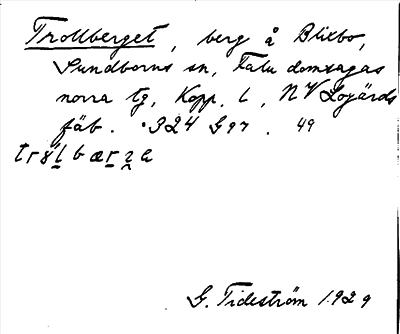 Trollberget, berg å Blixbo,
Sundborns sn, Falu domsagas
norra tg, Kopp. l, NV Logärds
fäb. ·324 G97. 49
G. Tideström 1929